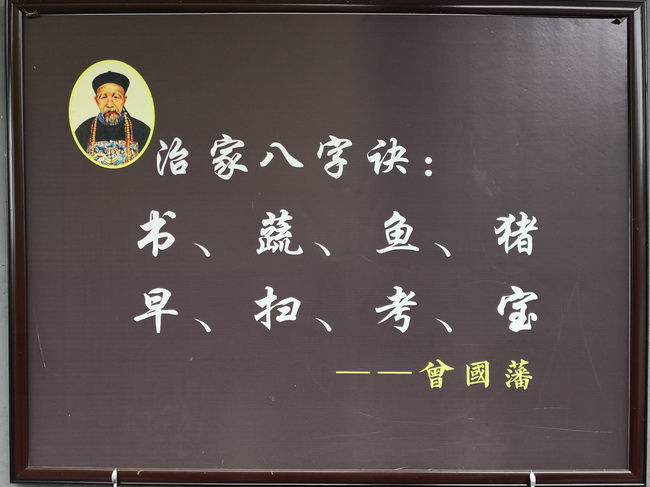 治家八字诀：
书、蔬、鱼、猪
早、扫、考、宝
——曾國藩